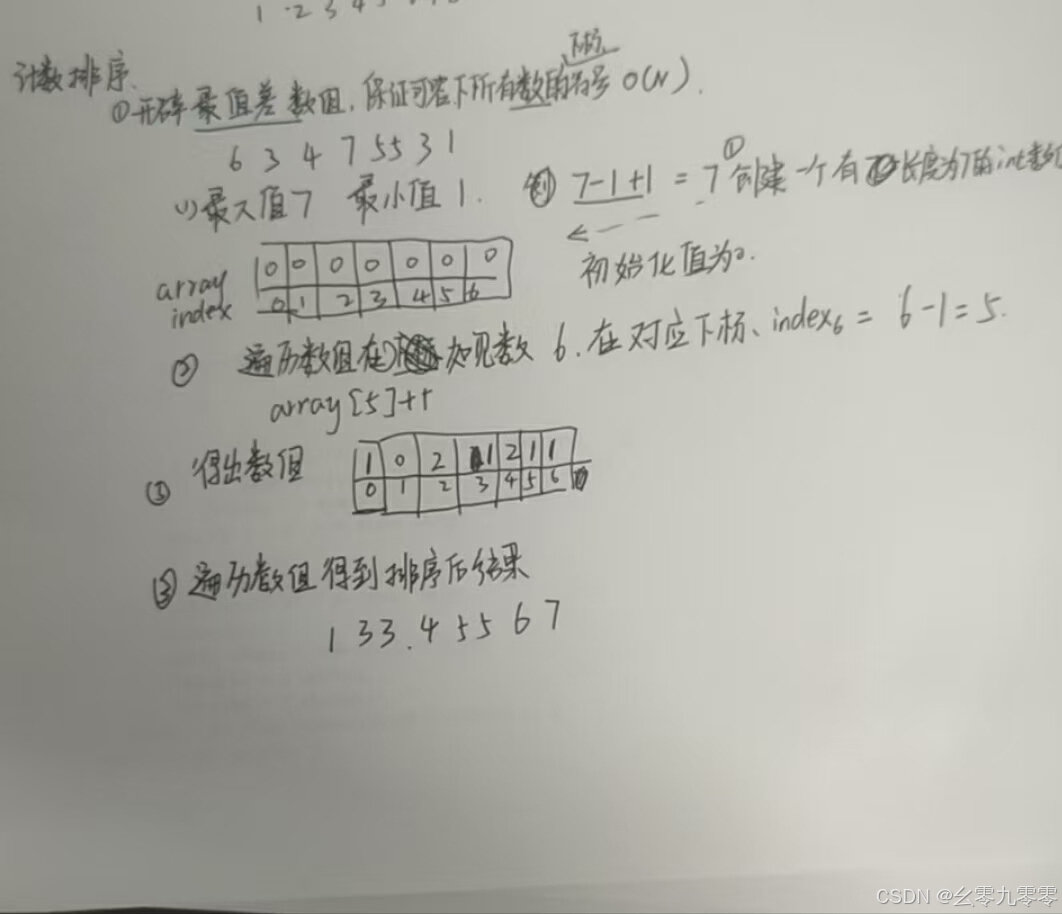 1 2 3 4 5
计数排序.
下标
①开辟最值差数组,保证可容下所有数的符号 O(N).
6 3 4 7 5 5 3 1
(1)最大值7 最小值1. 例 7-1+1 = 7 ①创建一个有长度为7的int数组
初始化值为0.
array 0 0 0 0 0 0 0
index 0 1 2 3 4 5 6
② 遍历数组在如见数 6.在对应下标、index6 = 6-1=5.
array[5]++
③ 得出数组 1 0 2 1 2 1 1
0 1 2 3 4 5 6
③遍历数组得到排序后结果
1 3 3 . 4 5 5 6 7
CSDN @幺零九零零